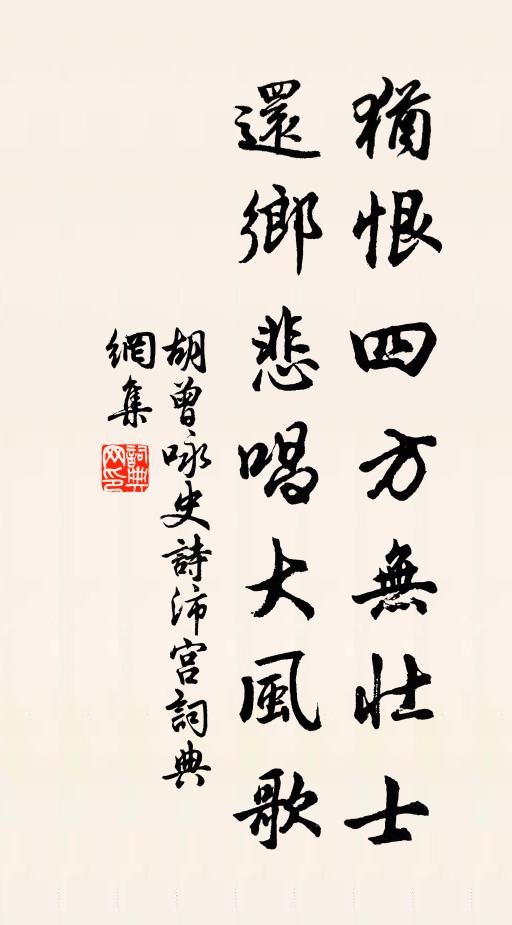 猶恨四方無壯士
還鄉悲唱大風歌
胡曾咏史詩沛宮詞典
網集
詞典
网印